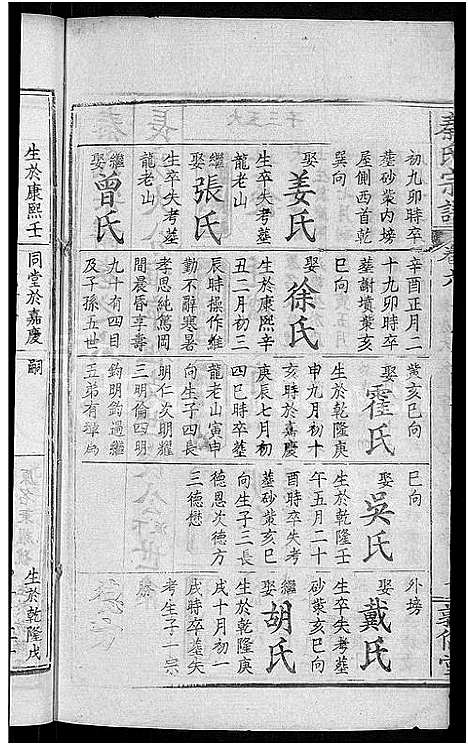 秦氏宗譜
卷六
敦倫堂
初九卯時卒
塟砂塟内塝
屋側西首乾
巽向
娶姜氏
生卒失考塟
龍老山
繼娶張氏
生卒失考塟
龍老山
繼娶曾氏
辛酉正月二
十九卯時卒
塟謝墳葉亥
巳向
娶徐氏
生於康熙辛
丑二月初三
辰時操作維
勤不辭寒暑
孝思純篤岡
間晨昏享壽
九十有四目
及子孫五世
葉亥巳向
娶霍氏
生於乾隆庚
申九月初十
亥時於嘉慶
庚辰七月初
四巳時卒塟
龍老山寅申
向生子四長
明仁次明耀
三明倫四明
鈞明鈞過繼
五弟有
巳向
娶吳氏
生於乾隆壬
午五月二十
酉時卒失考
塟砂葉亥巳
向生子三長
德恩次德方
三德懋
外塝
娶戴氏
生卒失考塟
砂葉亥巳向
繼娶胡氏
生於乾隆庚
戌十月初一
戌時卒塟失
考生子一宗
生於康熙壬
同堂於嘉慶
嗣
生於乾隆戌